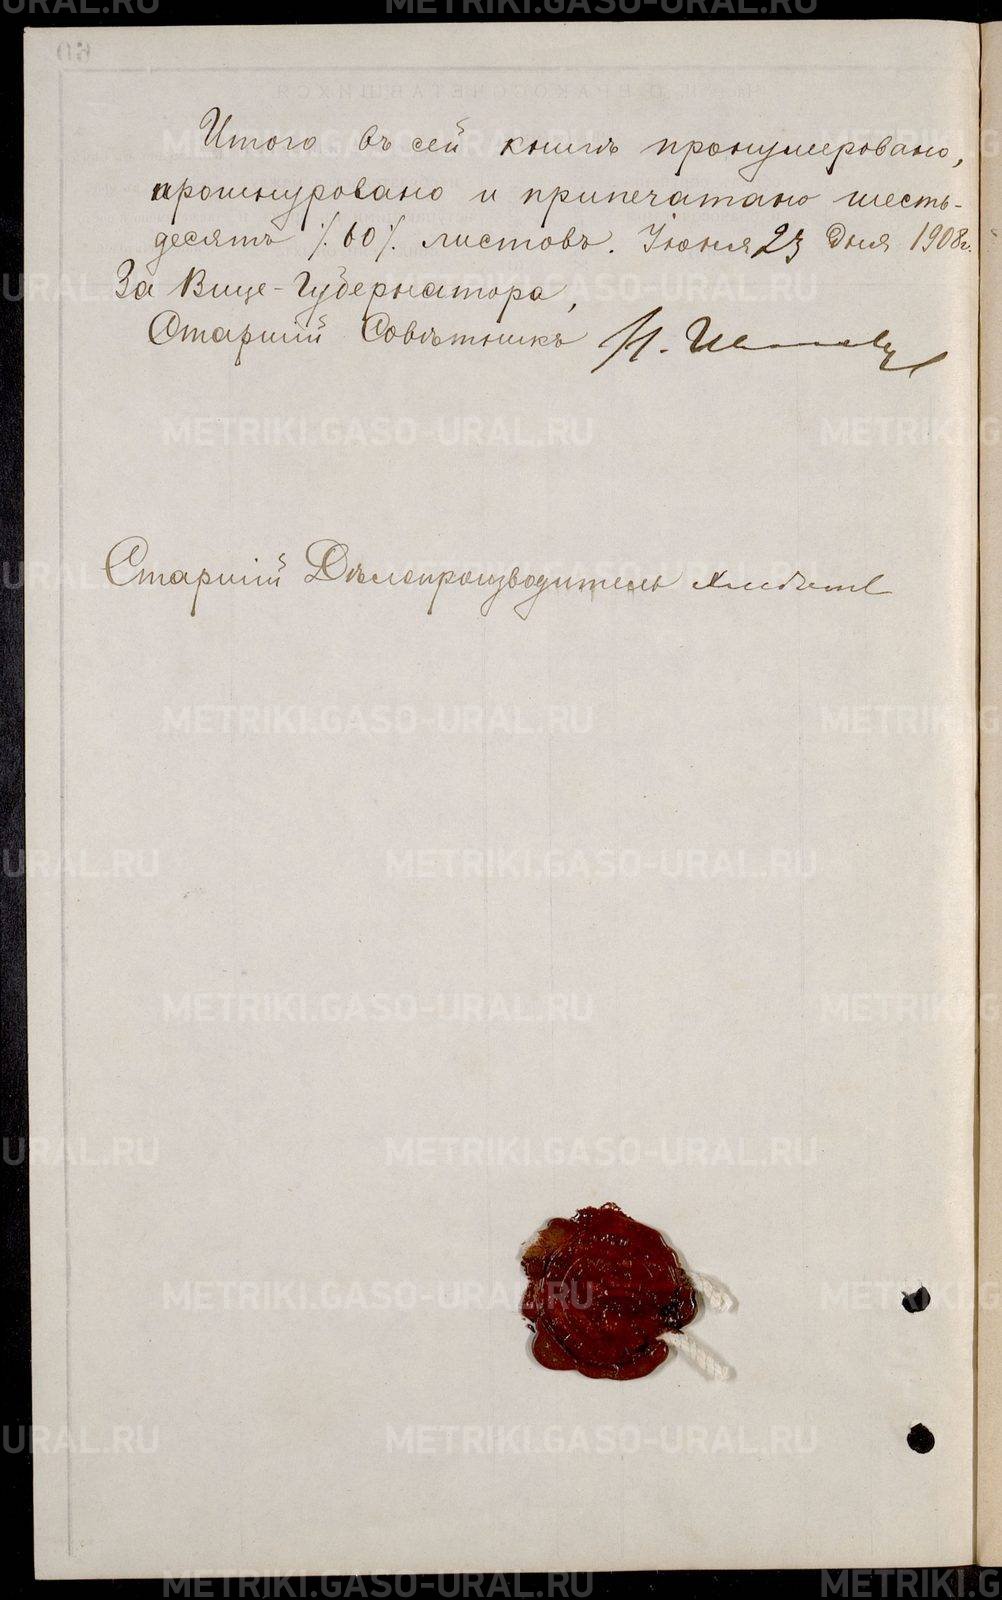 Итого въ сей книгѣ пронумеровано,
прошнуровано и припечатано шесть-
десятъ /.60/. листовъ. Іюня 23 дня 1908 г.
За Вице-Губернатора,
Старшій Совѣтникъ Н.
Старшій Дѣлопроизводитель
METRIKI.GASO-URAL.RU